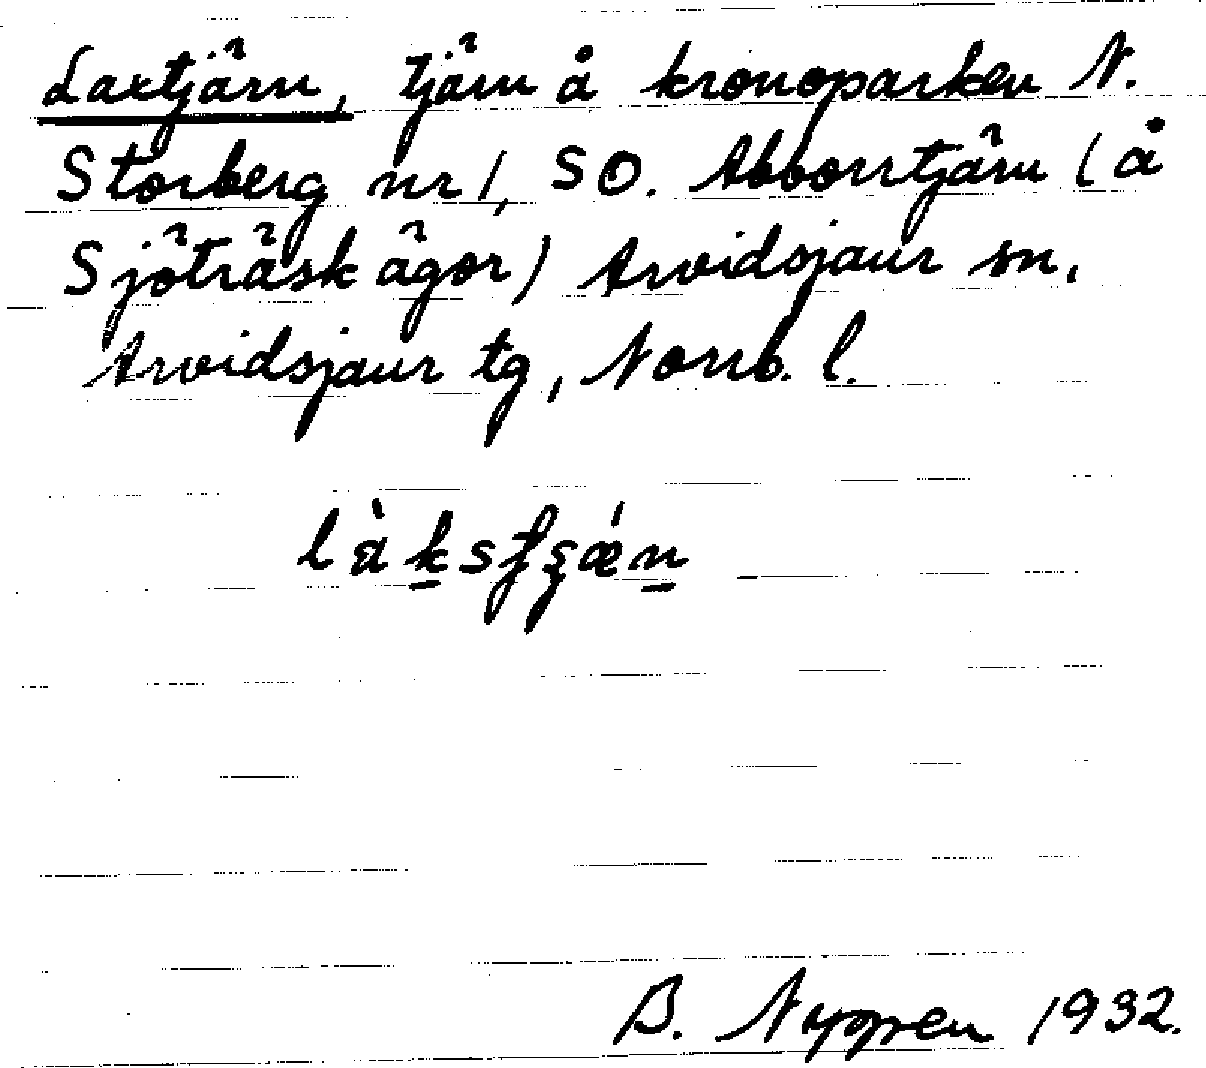 Laxtjärn, tjärn å kronoparken N.
Storberg nr 1, SO. Abborrtjärn (å
Sjöträsk ägor) Arvidsjaur sn,
Arvidsjaur tg, Norrb. l.
B. Nygren 1932.